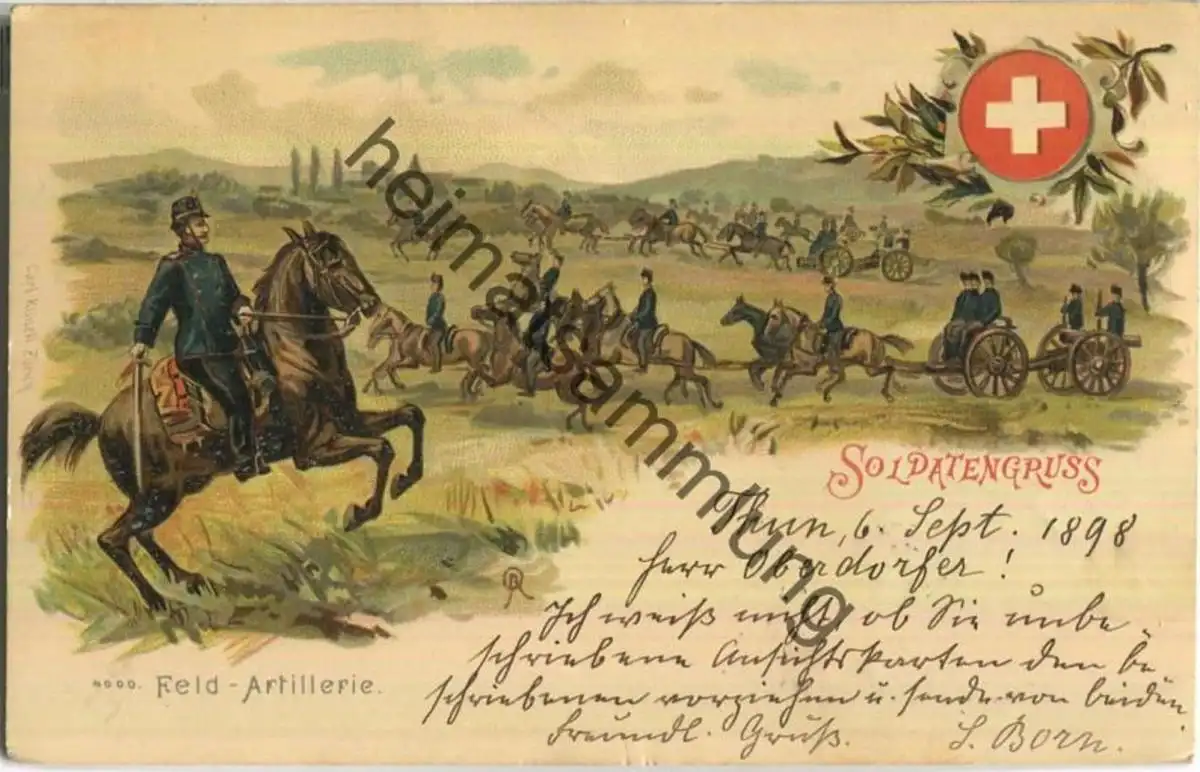 SOLDATENGRUSS
Thun, 6. Sept. 1898
Herr Oberdorfer!
Ich weiß nicht, ob Sie unbe-
schriebene Ansichtskarten den be-
schriebenen vorziehen u. sende von beiden.
Freundl. Gruß. S. Born.
4000. Feld-Artillerie.
heimatsammlung